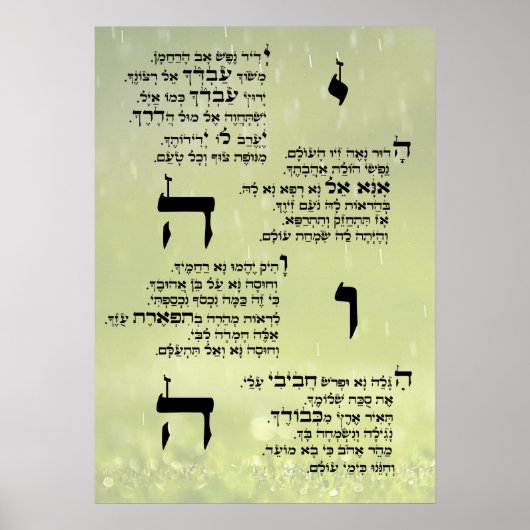 יְדִיד נֶפֶשׁ אָב הָרַחֲמָן.
מְשׁוֹךְ עַבְדְּךָ אֶל רְצוֹנֶךָ.
יָרוּץ עַבְדְּךָ כְּמוֹ אַיָּל.
יִשְׁתַּחֲוֶה אֶל מוּל הֲדָרֶךָ.
יֶעֱרַב לוֹ יְדִידוֹתֶיךָ.
מִנּוֹפֶת צוּף וְכָל טָעַם.
י
הָדוּר נָאֶה זִיו הָעוֹלָם.
נַפְשִׁי חוֹלַת אַהֲבָתֶךָ.
אָנָא אֵל נָא רְפָא נָא לָהּ.
בְּהַרְאוֹת לָהּ נֹעַם זִיוֶךָ.
אָז תִּתְחַזֵּק וְתִתְרַפֵּא.
וְהָיְתָה לָהּ שִׂמְחַת עוֹלָם.
ה
וָתִיק יֶהֱמוּ נָא רַחֲמֶיךָ.
וְחוּסָה נָא עַל בֵּן אֲהוּבֶךָ.
כִּי זֶה כַּמָּה נִכְסוֹף נִכְסַפְתִּי.
לִרְאוֹת מְהֵרָה בְּתִפְאֶרֶת עֻזֶּךָ.
אֵלֶּה חָמְדָה לִבִּי.
וְחוּסָה נָא וְאַל תִּתְעַלָּם.
ו
הִגָּלֶה נָא וּפְרֹשׂ חֲבִיבִי עָלַי.
אֶת סֻכַּת שְׁלוֹמֶךָ.
תָּאִיר אֶרֶץ מִכְּבוֹדֶךָ.
נָגִילָה וְנִשְׂמְחָה בָּךְ.
מַהֵר אֱהֹב כִּי בָא מוֹעֵד.
וְחָנֵּנוּ כִּימֵי עוֹלָם.
ה